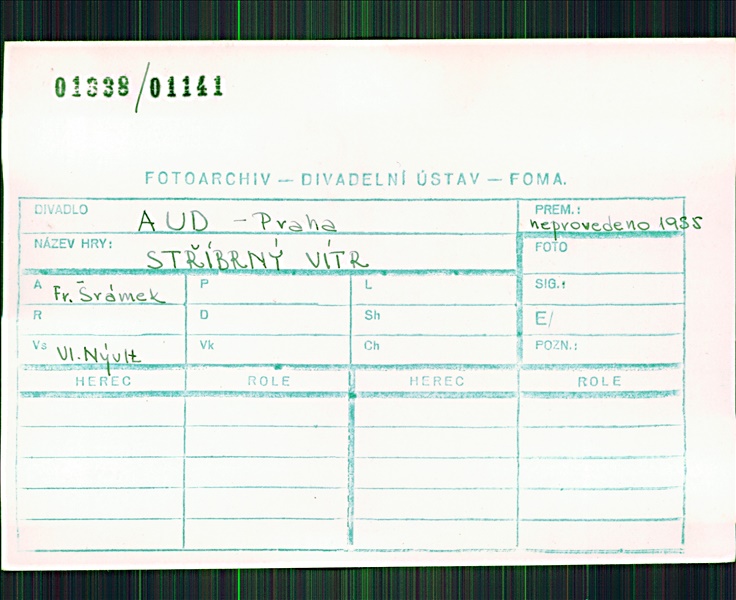 01338/01141
FOTOARCHIV — DIVADELNÍ ÚSTAV — FOMA.
DIVADLO AUD - Praha
PREM.: neprovedeno 1955
NÁZEV HRY: STŘÍBRNÝ VÍTR
FOTO
A Fr. Šrámek P L SIG.:
R D Sh E/
Vs Vl. Nývlt Vk Ch POZN.:
HEREC ROLE HEREC ROLE